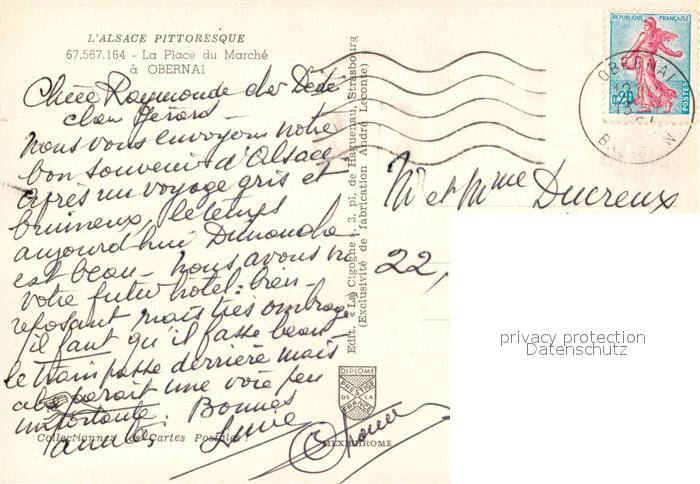 L'ALSACE PITTORESQUE
67.567.164 - La Place du Marché
à OBERNAI
Chère Raymonde cher Dédé
cher Gérard -
Nous vous envoyons notre
bon souvenir d'Alsace
après un voyage gris et
brumeux, le temps
aujourd'hui Dimanche
est beau - nous avons vu
votre futur hôtel : bien
reposant mais très ombragé
il faut qu'il fasse beau
le train passe derrière mais
cela paraît une voie peu
importante. Bonnes
Collectionnez les Cartes Postales !
Edit. « La Cigogne », 3, pl. de Haguenau, Strasbourg
(Exclusivité de fabrication André Leconte)
DIPLOME
PRESTIGE
DE LA
FRANCE
MEXICHROME
REPUBLIQUE FRANÇAISE
0,20
POSTES
OBERNAI
M et Mme Ducreux
22,
privacy protection
Datenschutz